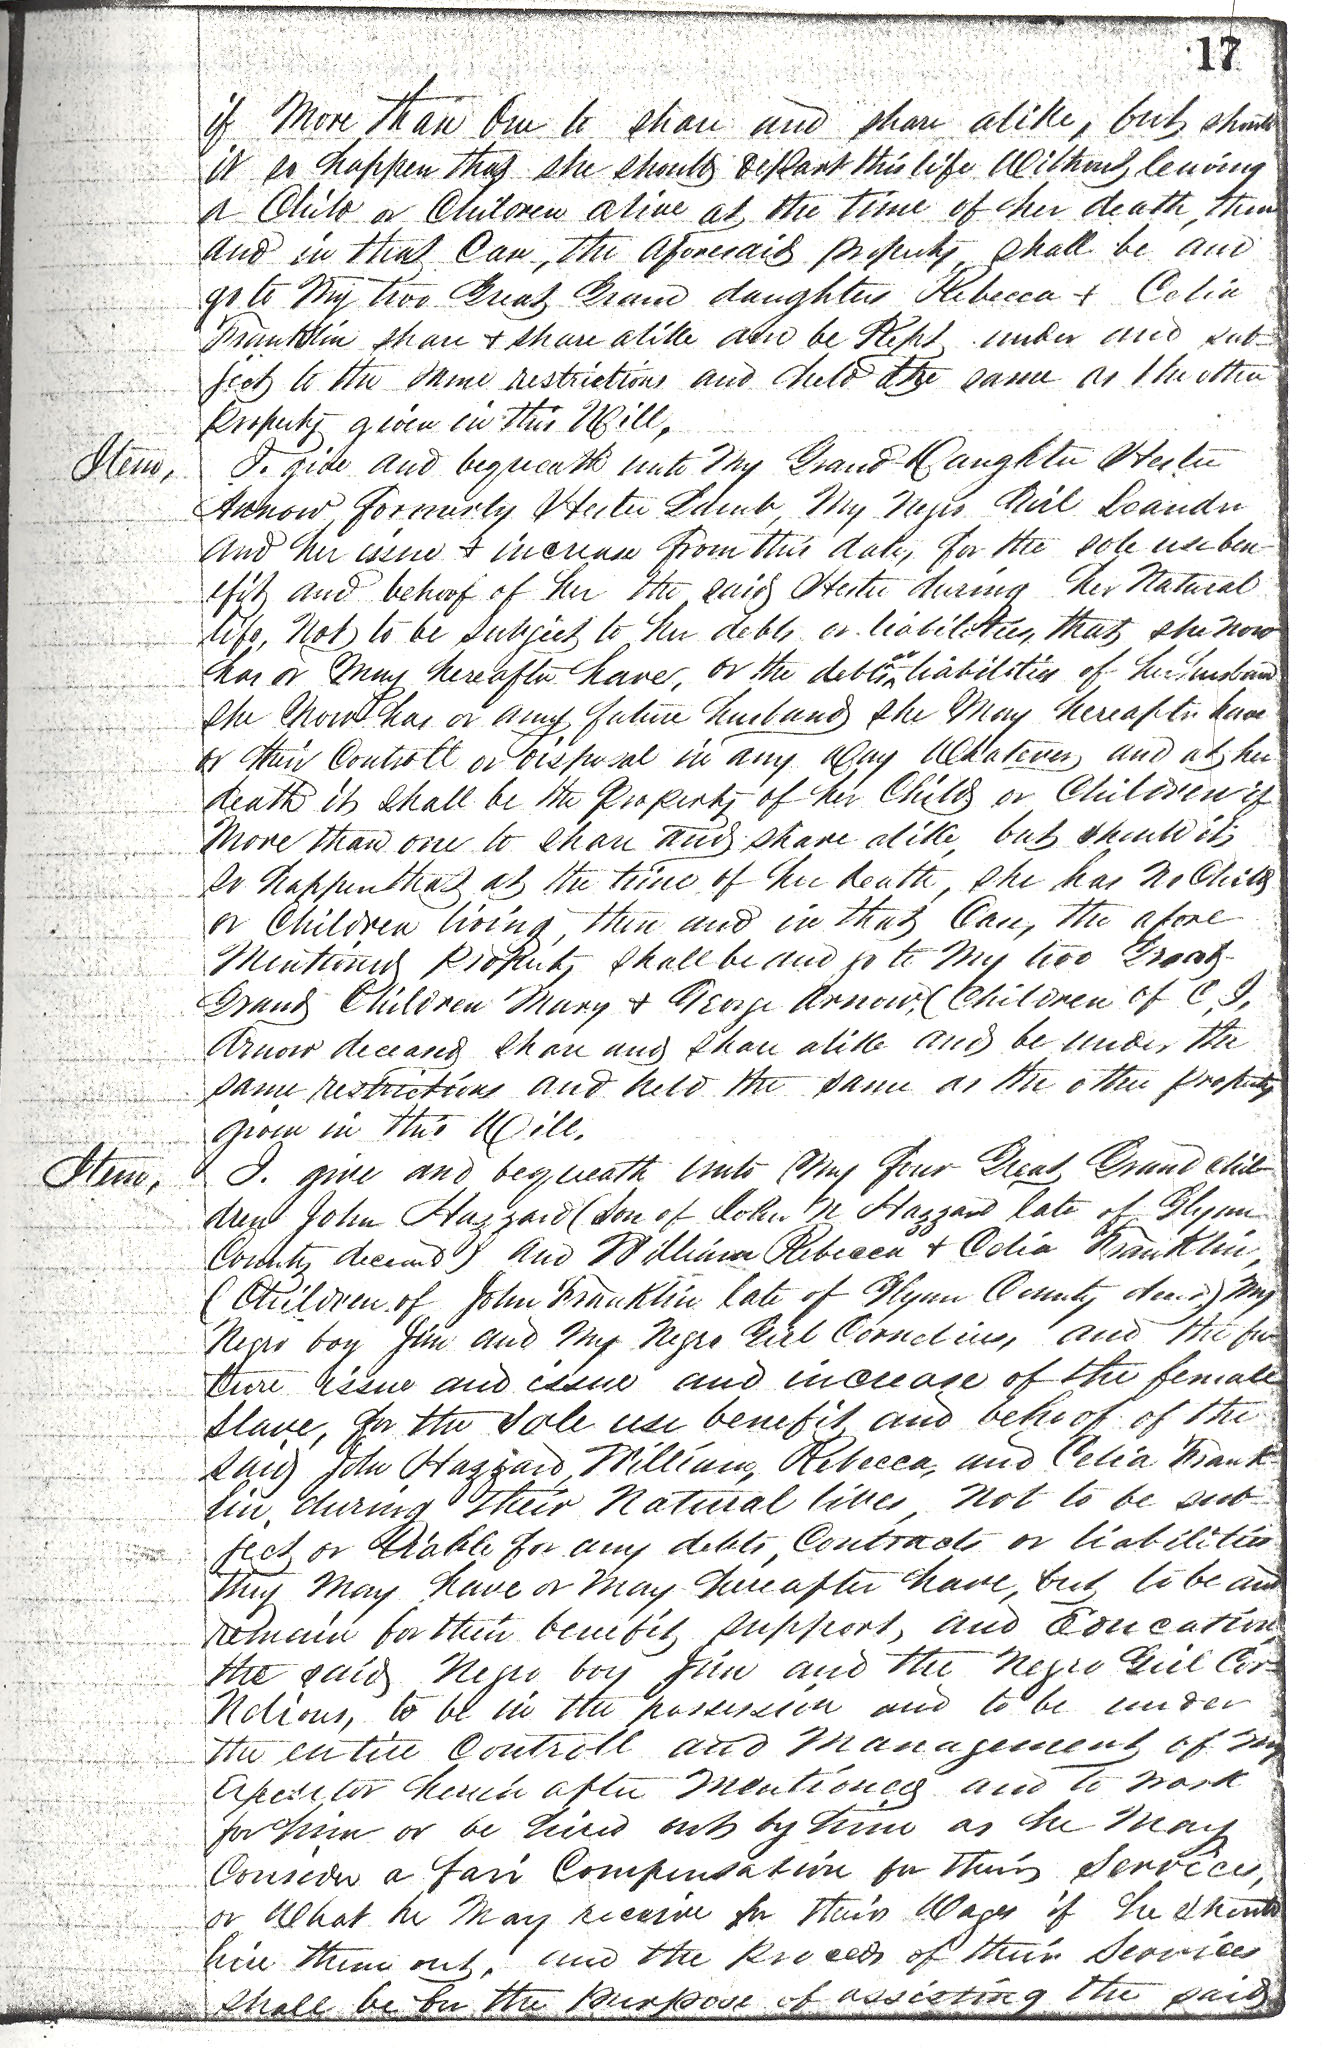 17
if More than One to share and share alike, but should
it so happen that she should depart this life Without leaving
a Child or Children alive at the time of her death, then
and in that Case, the aforesaid property, shall be and
go to My two Great Grand daughters Rebecca + Celia
Franklin share + share alike and be Kept under and sub-
ject to the same restrictions and held the same as the other
property given in this Will,
Item, I. give and bequeath unto My Grand Daughter Hester
Arnow, formerly Hester Lamb, My Negro Girl Leander
and her issue & increase from this date, for the sole use ben-
efit and behoof of her the said Hester during her Natural
life, Not to be subject to her debts or liabilities, that she now
has or May hereafter have, or the debts or liabilities of her husband
she Now has or any future husband she May hereafter have
or their Controll or disposal in any Way Whatever, and at her
death it shall be the Property of her Child or Children if
More than one to share and share alike, but should it
so happen that at the time of her death, she has No Child
or Children living, then and in that Case, the afore
Mentioned Property shall be and go to My two Great
Grand Children Mary + George Arnow, (Children of C, J,
Arnow deceased share and share alike and be under the
same restrictions and held the same as the other property
given in this Will.
Item, I. give and bequeath unto My four Great Grand chil-
dren John Hazzard (Son of John N Hazzard late of Glynn
County deceased) and William Rebecca + Celia Franklin,
(Children of John Franklin late of Glynn County decsd) My
Negro boy Jim and My Negro Girl Cornelius, and the fu-
ture issue and issue and increase of the female
slave, for the sole use benefit and behoof of the
said John Hazzard, William, Rebecca, and Celia Frank-
lin, during their Natural lives, Not to be sub-
ject or liable for any debts, Contracts or liabilities
they May have or May hereafter have, but to be and
remain for their benefit, support, and Education
the said Negro boy Jim and the Negro Girl Cor-
Nelious, to be in the possession and to be under
the entire Controll and Management of my
Executor herein after Mentioned and to work
for him or be hired out by him as he May
Consider a fair Compensation for their Services,
or What he May receive for their Wages if he should
hire them out, and the Proceeds of their Services
shall be for the Purpose of assisting the said